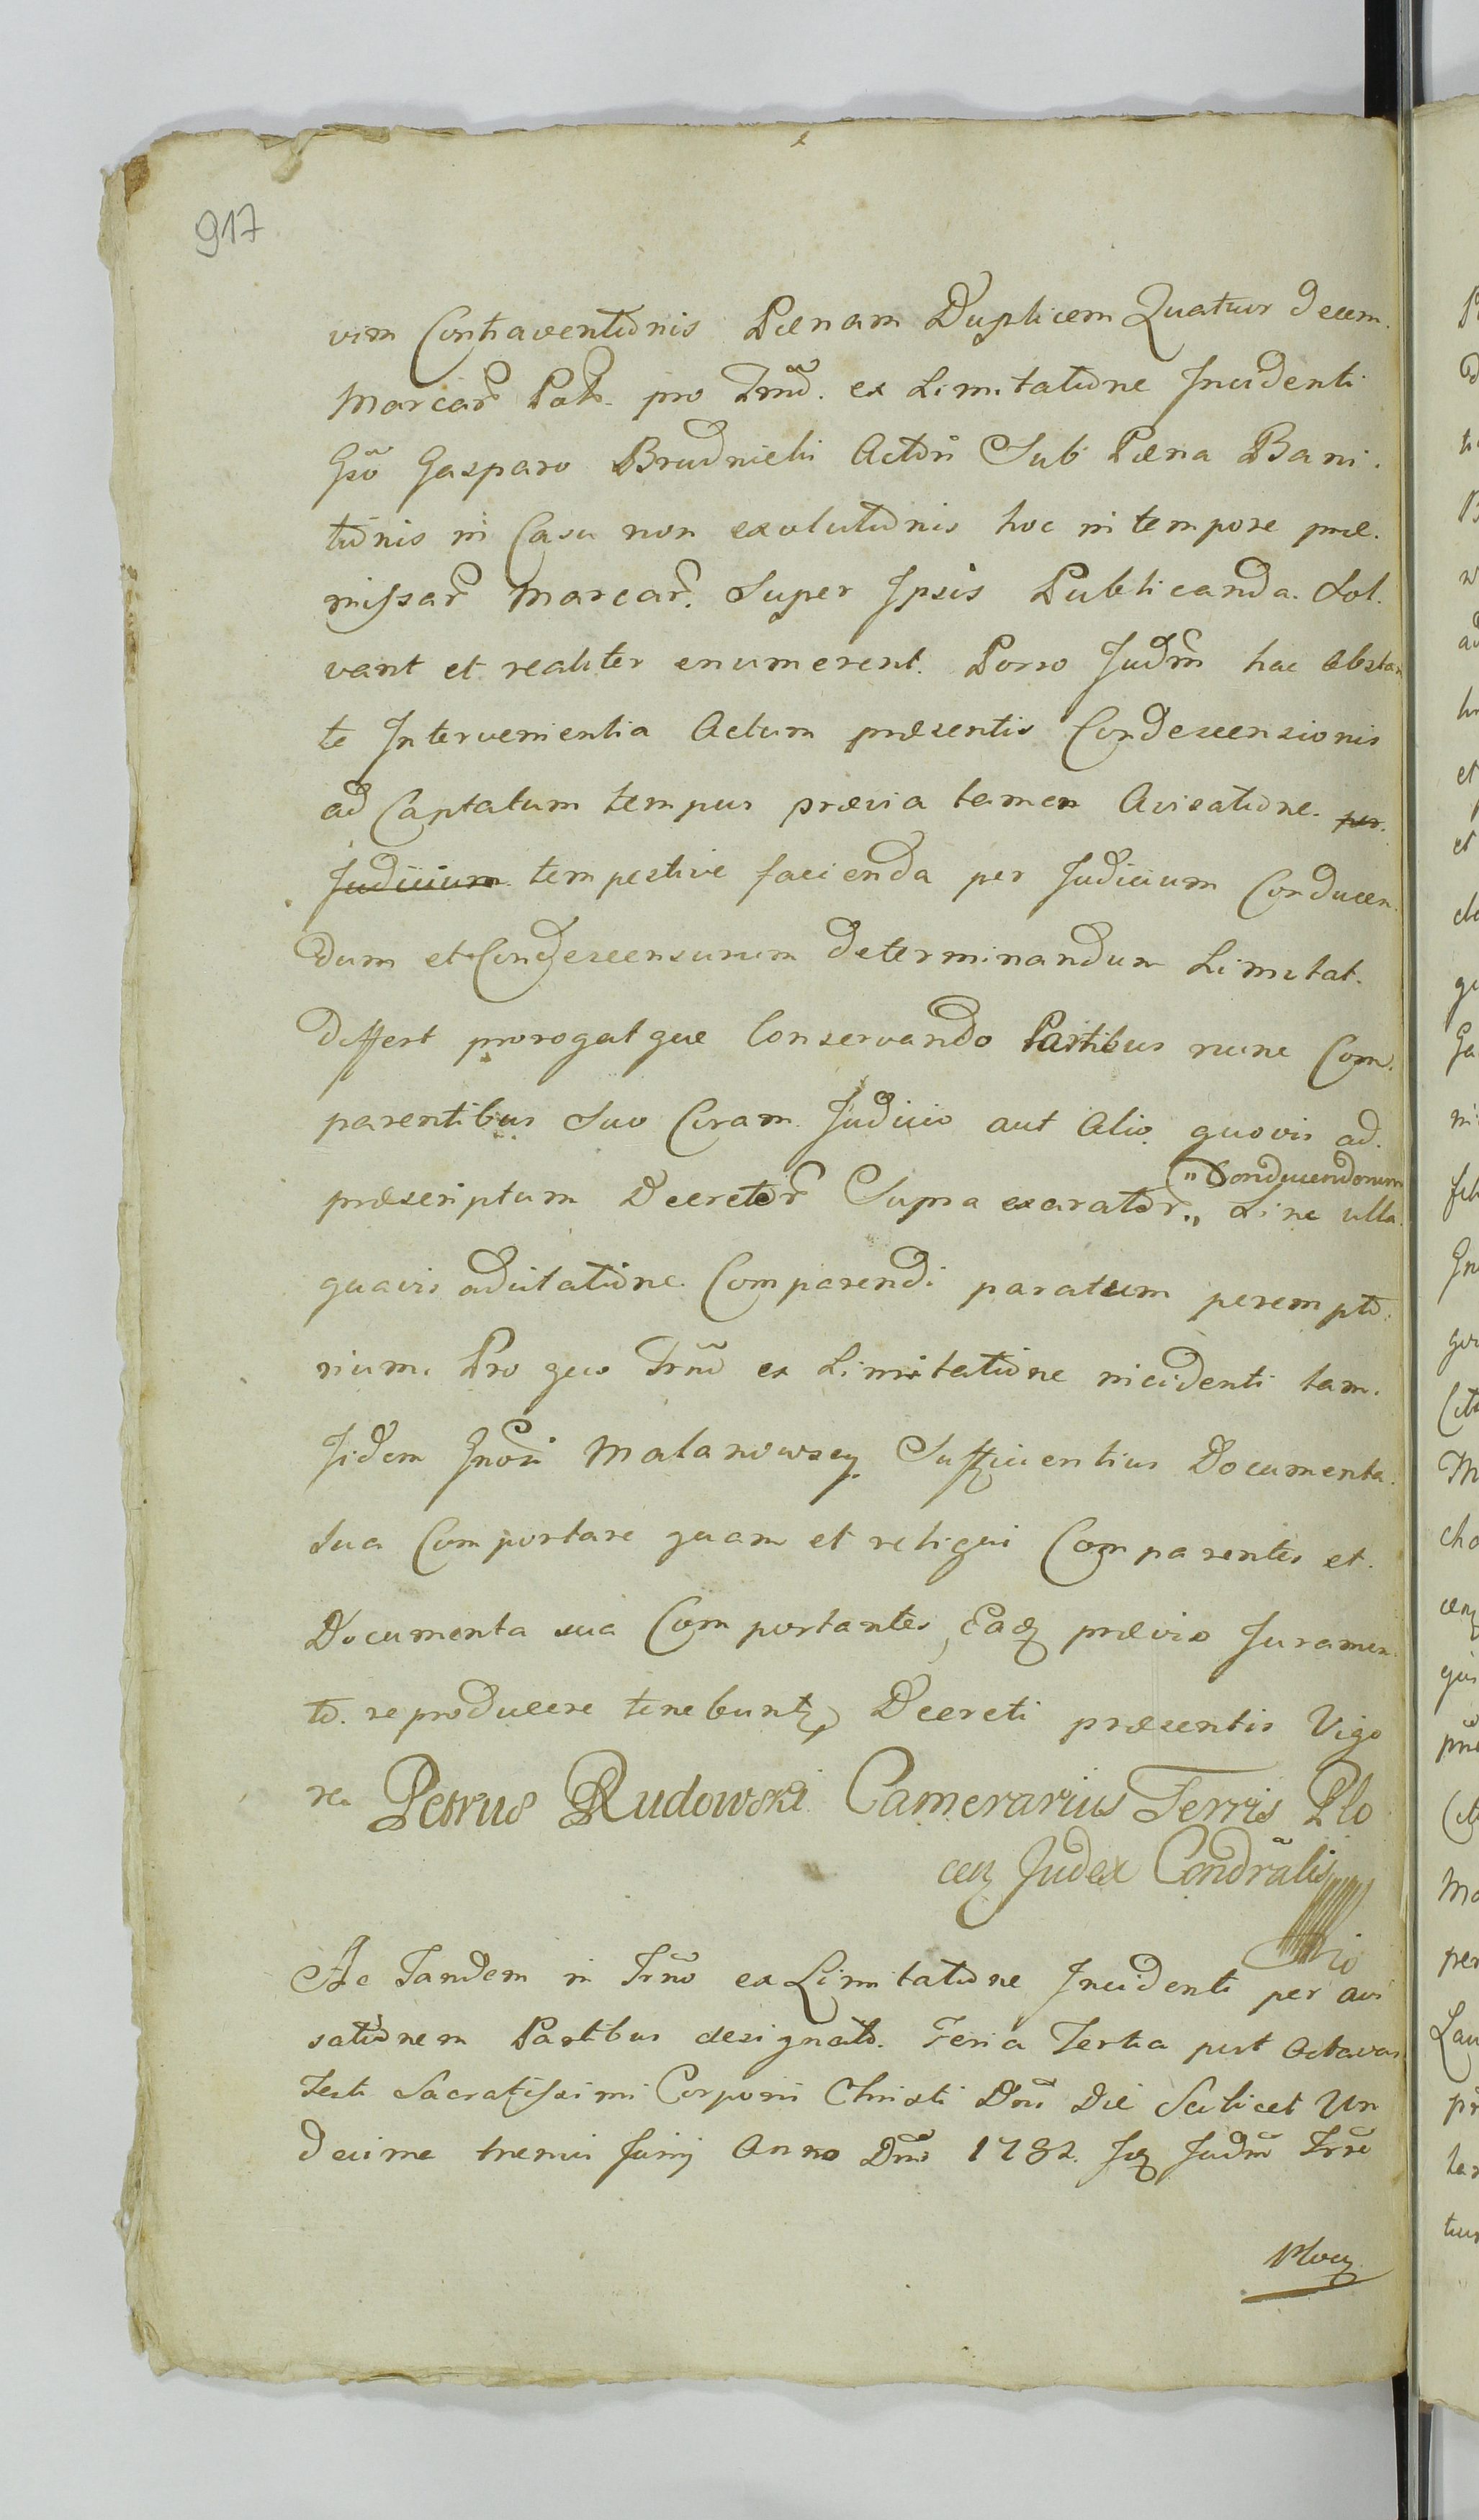 917
vim Contraventionis Pœnam Duplicem Quatuor decem
Marcar̃ Pol. pro Trm̃o. ex Limitatione Incidenti
Gsõ Gasparo Brudnicki Actori Sub Pœna Bani
tionis in Casu non exolutionis hoc in tempore præ
missar̃ Marcar̃. Super Ipsis Publicanda. Sol
vant et realiter enumerent. Porro Judm̃ hac Obstan
te Intervenientia Actum præsentis Condescensionis
ad Captatum tempus prævia tamen Avisatione. per
Judicium tempestive facienda per Judicium Conducen
dum et Condescensurum determinandum Limitat.
Differt prorogatque Conservando Partibus nunc Com
parentibus Suo Coram Judicio aut Alio quovis ad
"Conducendorum
præscriptum Decretor̃ Supra exarator̃ " Sine ulla
quavis adcitatione Comparendi paratum perempto
rium. Pro quo Trm̃o ex Limitatione incidenti tam
Iidem Gnosi Malanowscy Sufficientius Documenta
sua Comportare quam et reliqui Comparentes et
Documenta sua Comportantes, Eaq prævio Juramen
to. reproducere tenebuntr, Decreti præsentis Vigo
re. Petrus Rudowski Camerarius Terris Plo
cen Judex Condrãlis
Ac Tandem in Trm̃o ex Limitatione Incidenti per avi
sationem Partibus designato. Feria Tertia post Octavas
Festi Sacratissimi Corporis Christi Dnĩ Die Scilicet Un
decima mensis Junij Anno Dnĩ 1782. Judm̃ Trrẽ
Plocen